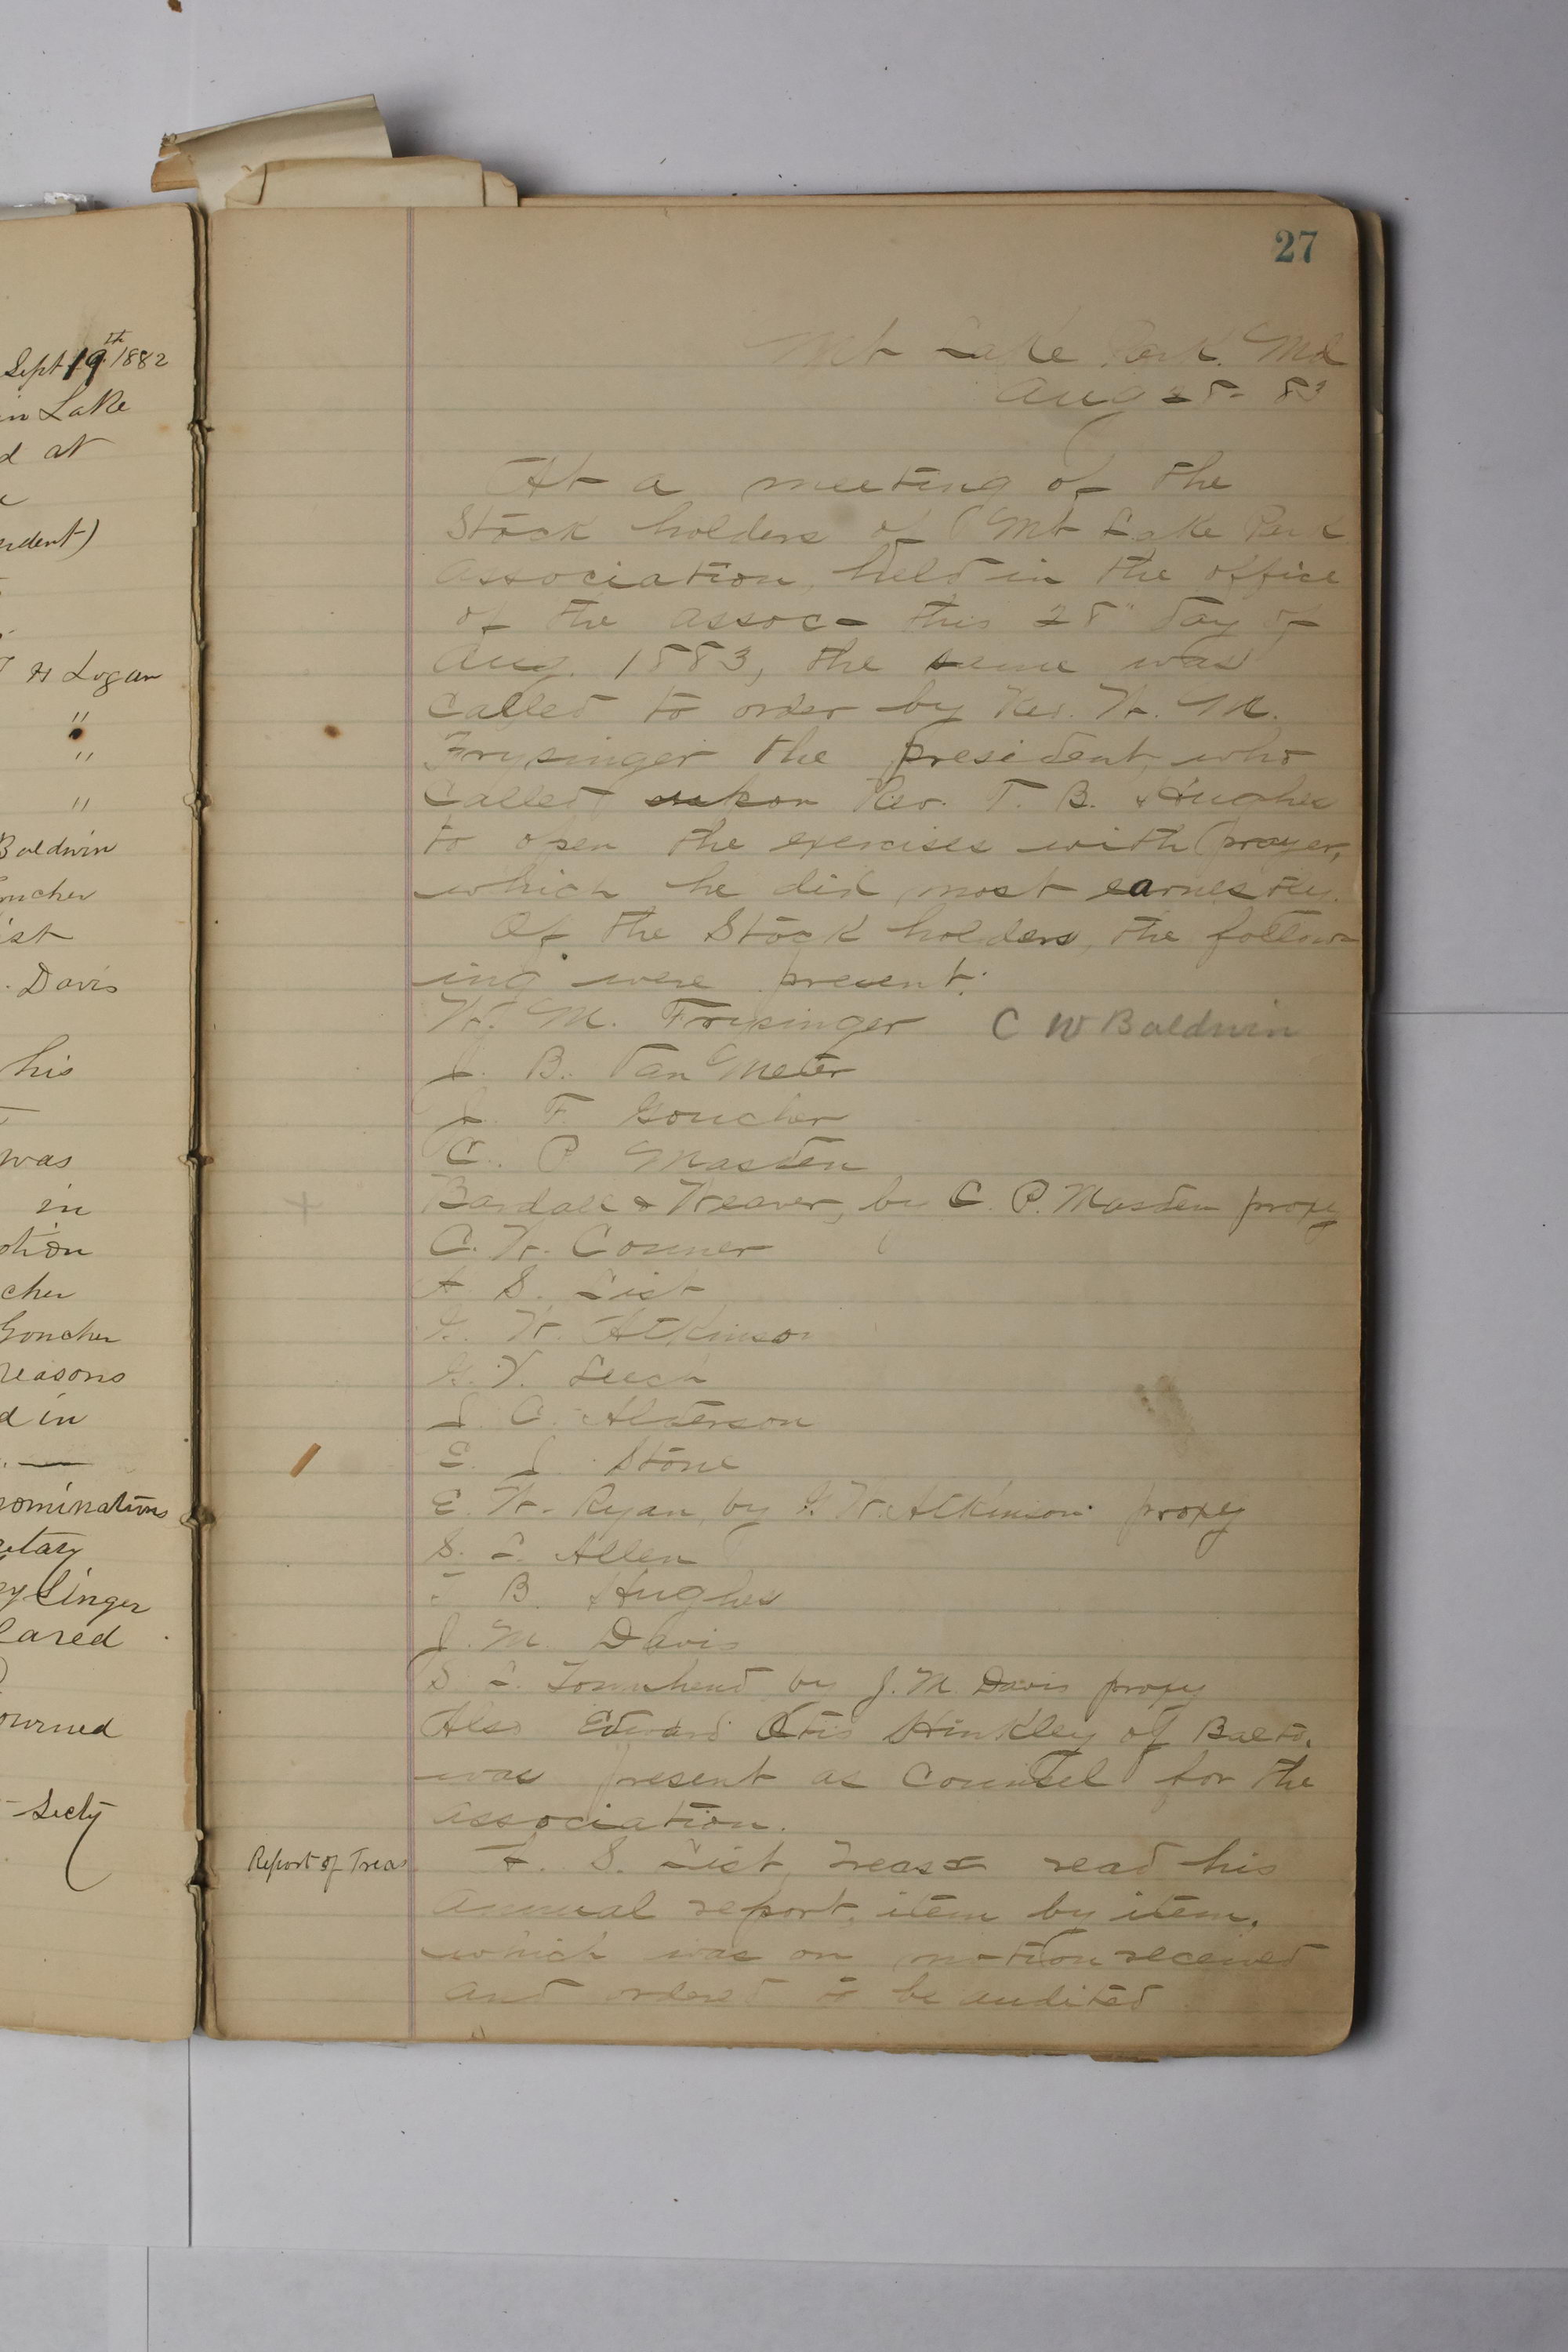 Sept 19th 1882
in Lake
d at
ident)
H Logan
"
"
"
Baldwin
oucher
ist
. Davis
his
was
in
otion
cher
Goucher
reasons
d in
nominations
etary
ysinger
lared
ourned
Secty
27
Mt Lake Park. Md
Aug 28- 83
At a meeting of the
Stock holders of Mt Lake Park
Association, held in the office
of the assoc- this 28" day of
Aug. 1883, the same was
called to order by Rev. W. M.
Frysinger the president, who
called upon Rev. T. B. Hughes
to open the exercises with prayer,
which he did most earnestly.
Of the Stock holders, the follow-
ing were present:
W. M. Frysinger C W Baldwin
J. B. Van Meter
J. F. Goucher
C. P. Masden
Bardall & Weaver, by C. P. Masden proxy
C. W. Conner
A S. List
G. W. Atkinson
G. V. Leech
J. C. Alderson
E. J. Stone
E. W. Ryan, by G. W. Atkinson proxy
S. L. Allen
T B. Hughes
J. M. Davis
S. L. Townshend by J. M. Davis proxy
Also Edward Otis Hinkley of Balto.
was present as Counsel for the
association.
Report of Treas
A. S. List, Treas- read his
annual report, item by item.
which was on motion received
and ordered to be audited